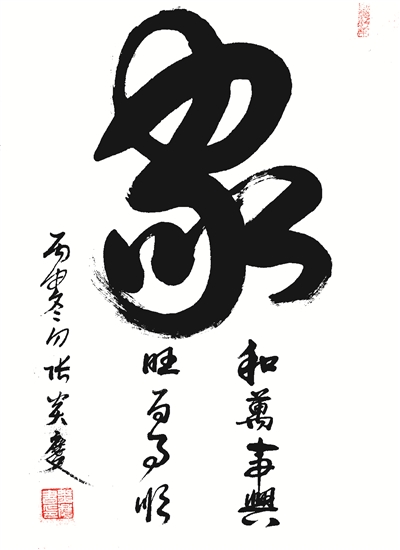 家
和萬事興
旺百事順
丙申冬月张